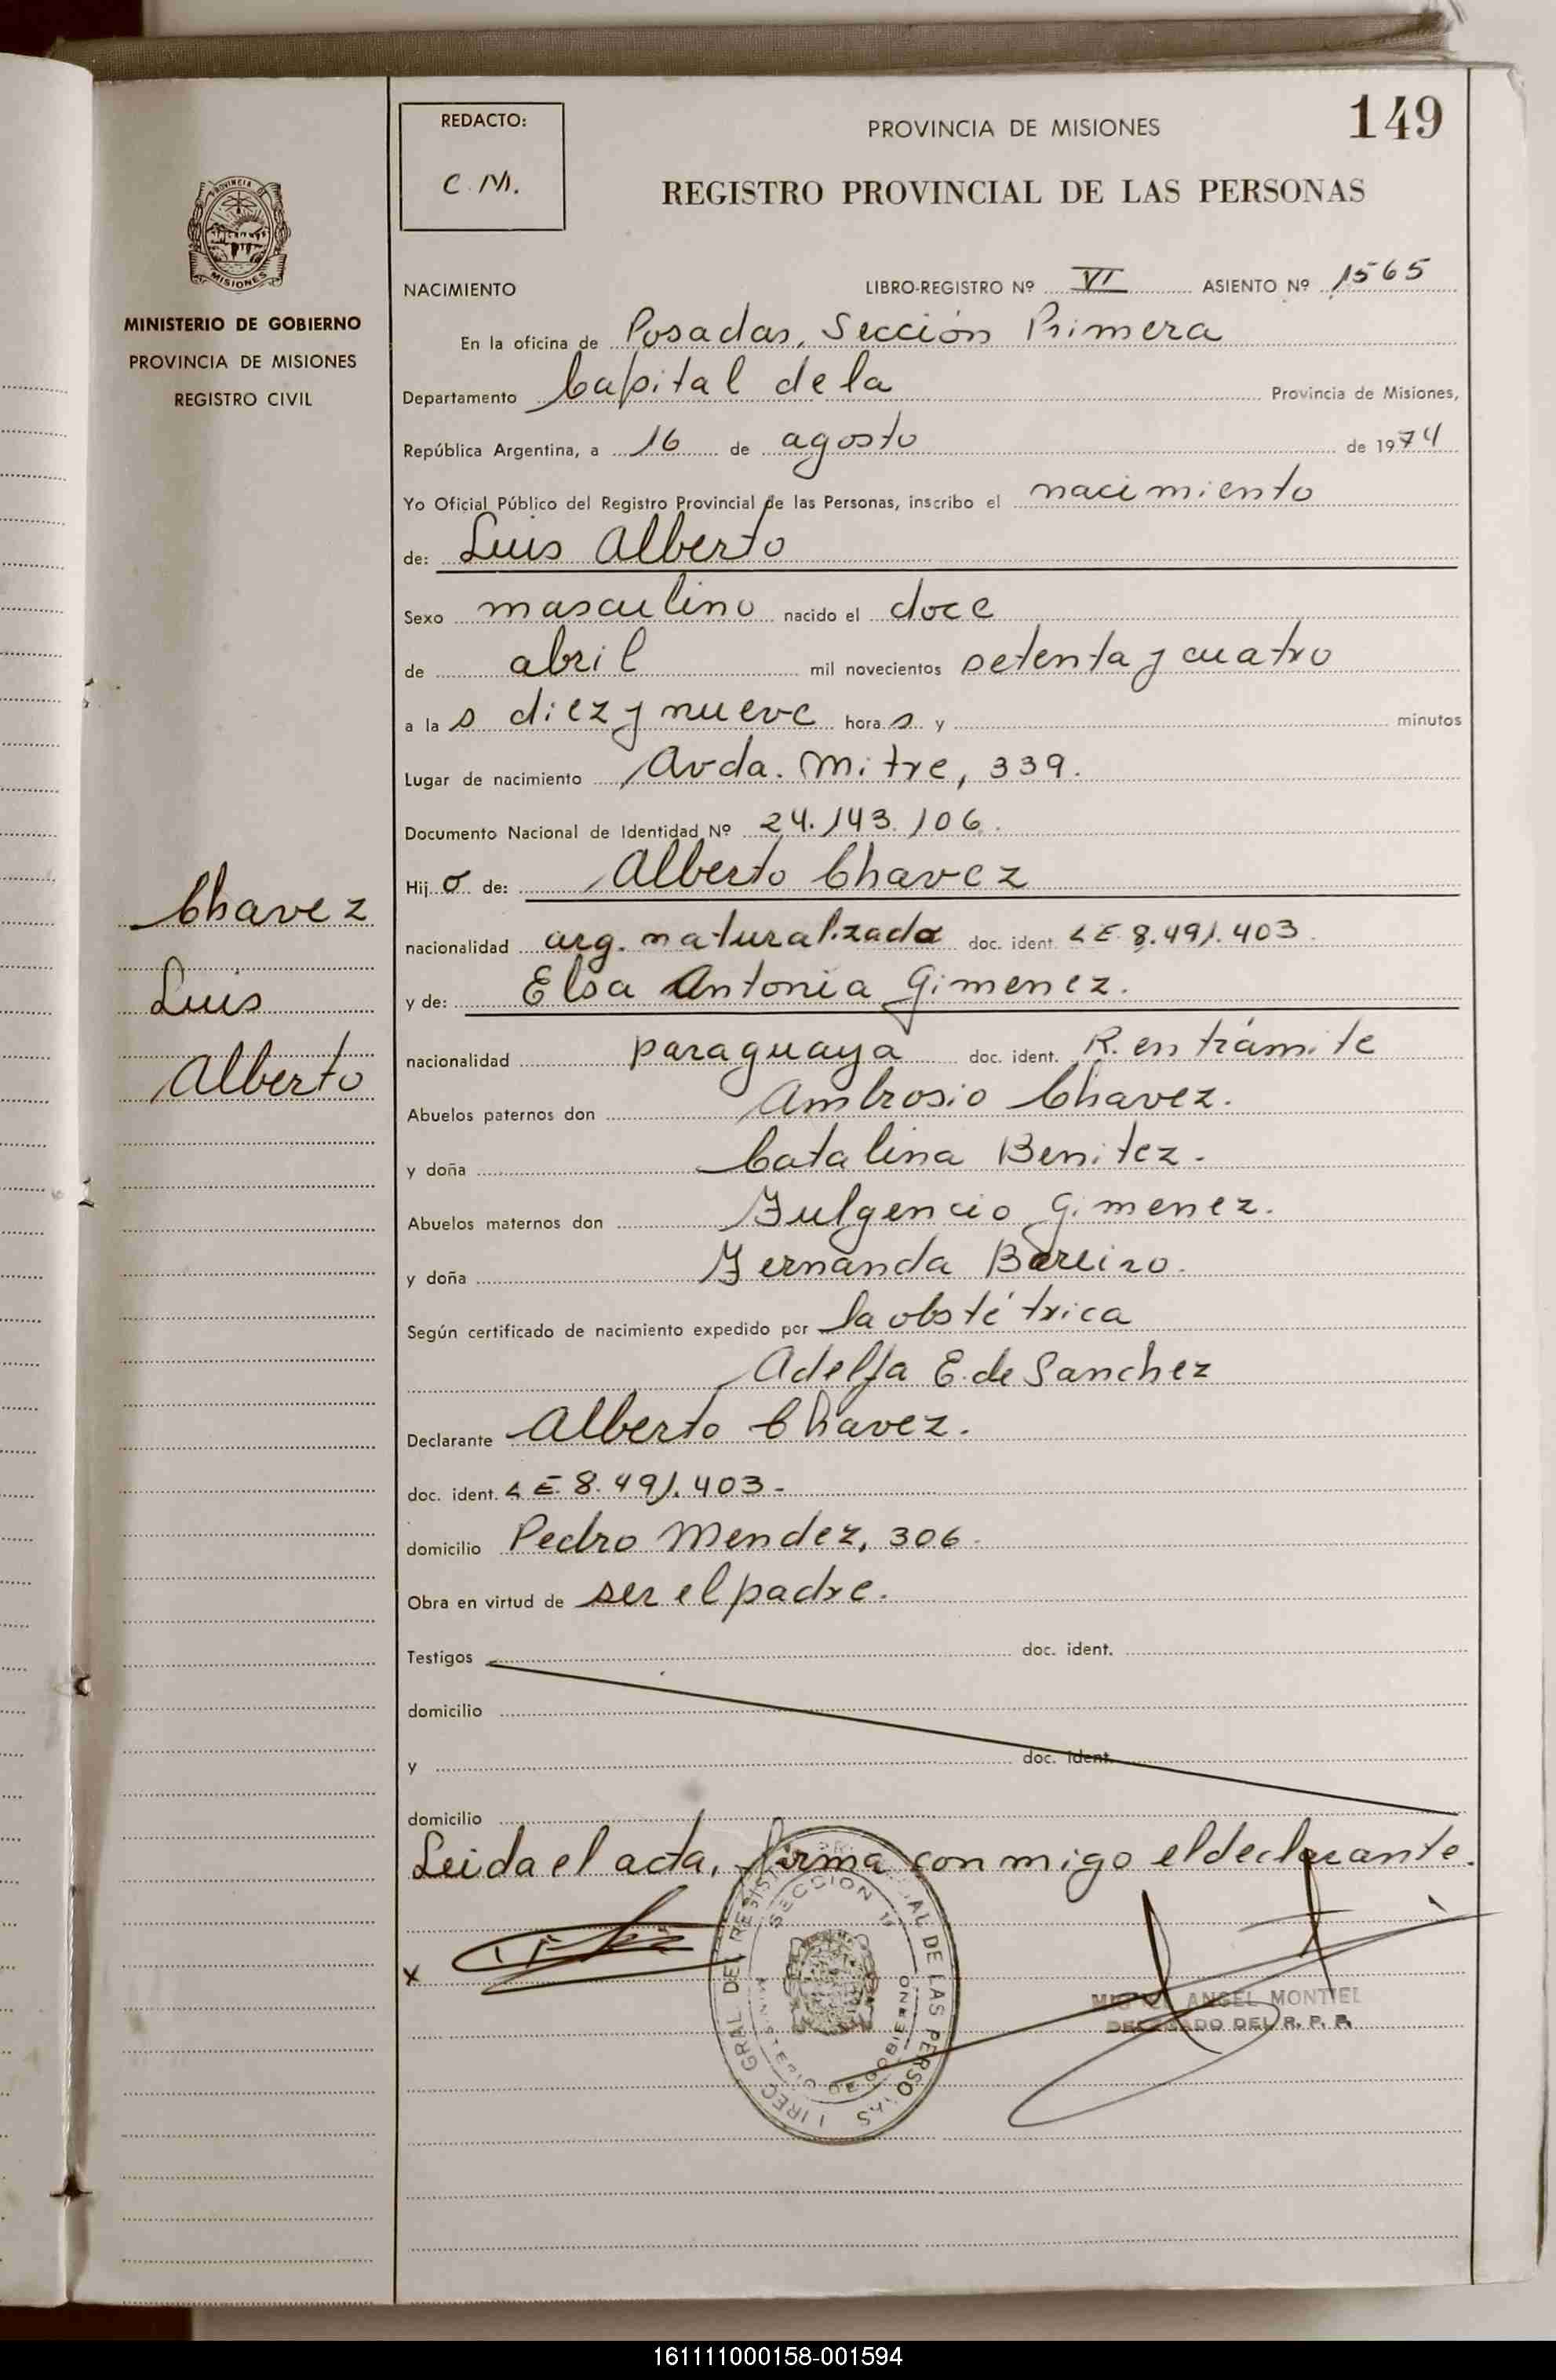 149
REDACTO:
C.M.
PROVINCIA DE MISIONES
REGISTRO PROVINCIAL DE LAS PERSONAS
PROVINCIA DE
MISIONES
MINISTERIO DE GOBIERNO
PROVINCIA DE MISIONES
REGISTRO CIVIL
Chavez
Luis
Alberto
NACIMIENTO LIBRO-REGISTRO Nº VI ASIENTO Nº 1565
En la oficina de Posadas, Sección Primera
Departamento Capital de la Provincia de Misiones,
República Argentina, a 16 de agosto de 1974
Yo Oficial Público del Registro Provincial de las Personas, inscribo el nacimiento
de: Luis Alberto
Sexo masculino nacido el doce
de abril mil novecientos setenta y cuatro
a la s diez y nueve hora s y minutos
Lugar de nacimiento Avda. Mitre, 339.
Documento Nacional de Identidad Nº 24.143.106.
Hij o de: Alberto Chavez
nacionalidad arg. naturalizado doc. ident. LE 8.491.403.
y de: Elsa Antonia Gimenez.
nacionalidad paraguaya doc. ident. R. en trámite
Abuelos paternos don Ambrosio Chavez.
y doña Catalina Benitez.
Abuelos maternos don Fulgencio Gimenez.
y doña Fernanda Bareiro.
Según certificado de nacimiento expedido por la obstétrica
Adelfa E. de Sanchez
Declarante Alberto Chavez.
doc. ident. LE. 8.491.403-
domicilio Pedro Mendez, 306.
Obra en virtud de ser el padre.
Testigos doc. ident.
domicilio
y doc. ident.
domicilio
Leida el acta, firma conmigo el declarante.
x
SECCION 1ª
MINISTERIO DE GOBIERNO
DE LAS PERSONAS
ANGEL MONTIEL
DELEGADO DEL R. P. P.
161111000158-001594